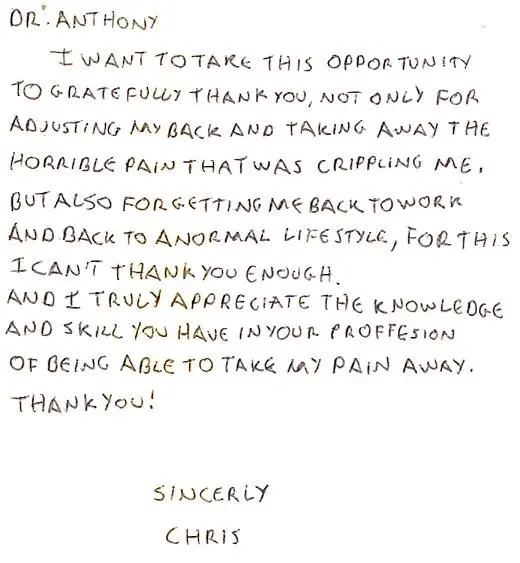 DR. ANTHONY
I WANT TO TAKE THIS OPPORTUNITY
TO GRATEFULLY THANK YOU, NOT ONLY FOR
ADJUSTING MY BACK AND TAKING AWAY THE
HORRIBLE PAIN THAT WAS CRIPPLING ME.
BUT ALSO FOR GETTING ME BACK TO WORK
AND BACK TO A NORMAL LIFESTYLE, FOR THIS
I CAN'T THANK YOU ENOUGH.
AND I TRULY APPRECIATE THE KNOWLEDGE
AND SKILL YOU HAVE IN YOUR PROFFESION
OF BEING ABLE TO TAKE MY PAIN AWAY.
THANK YOU!
SINCERLY
CHRIS